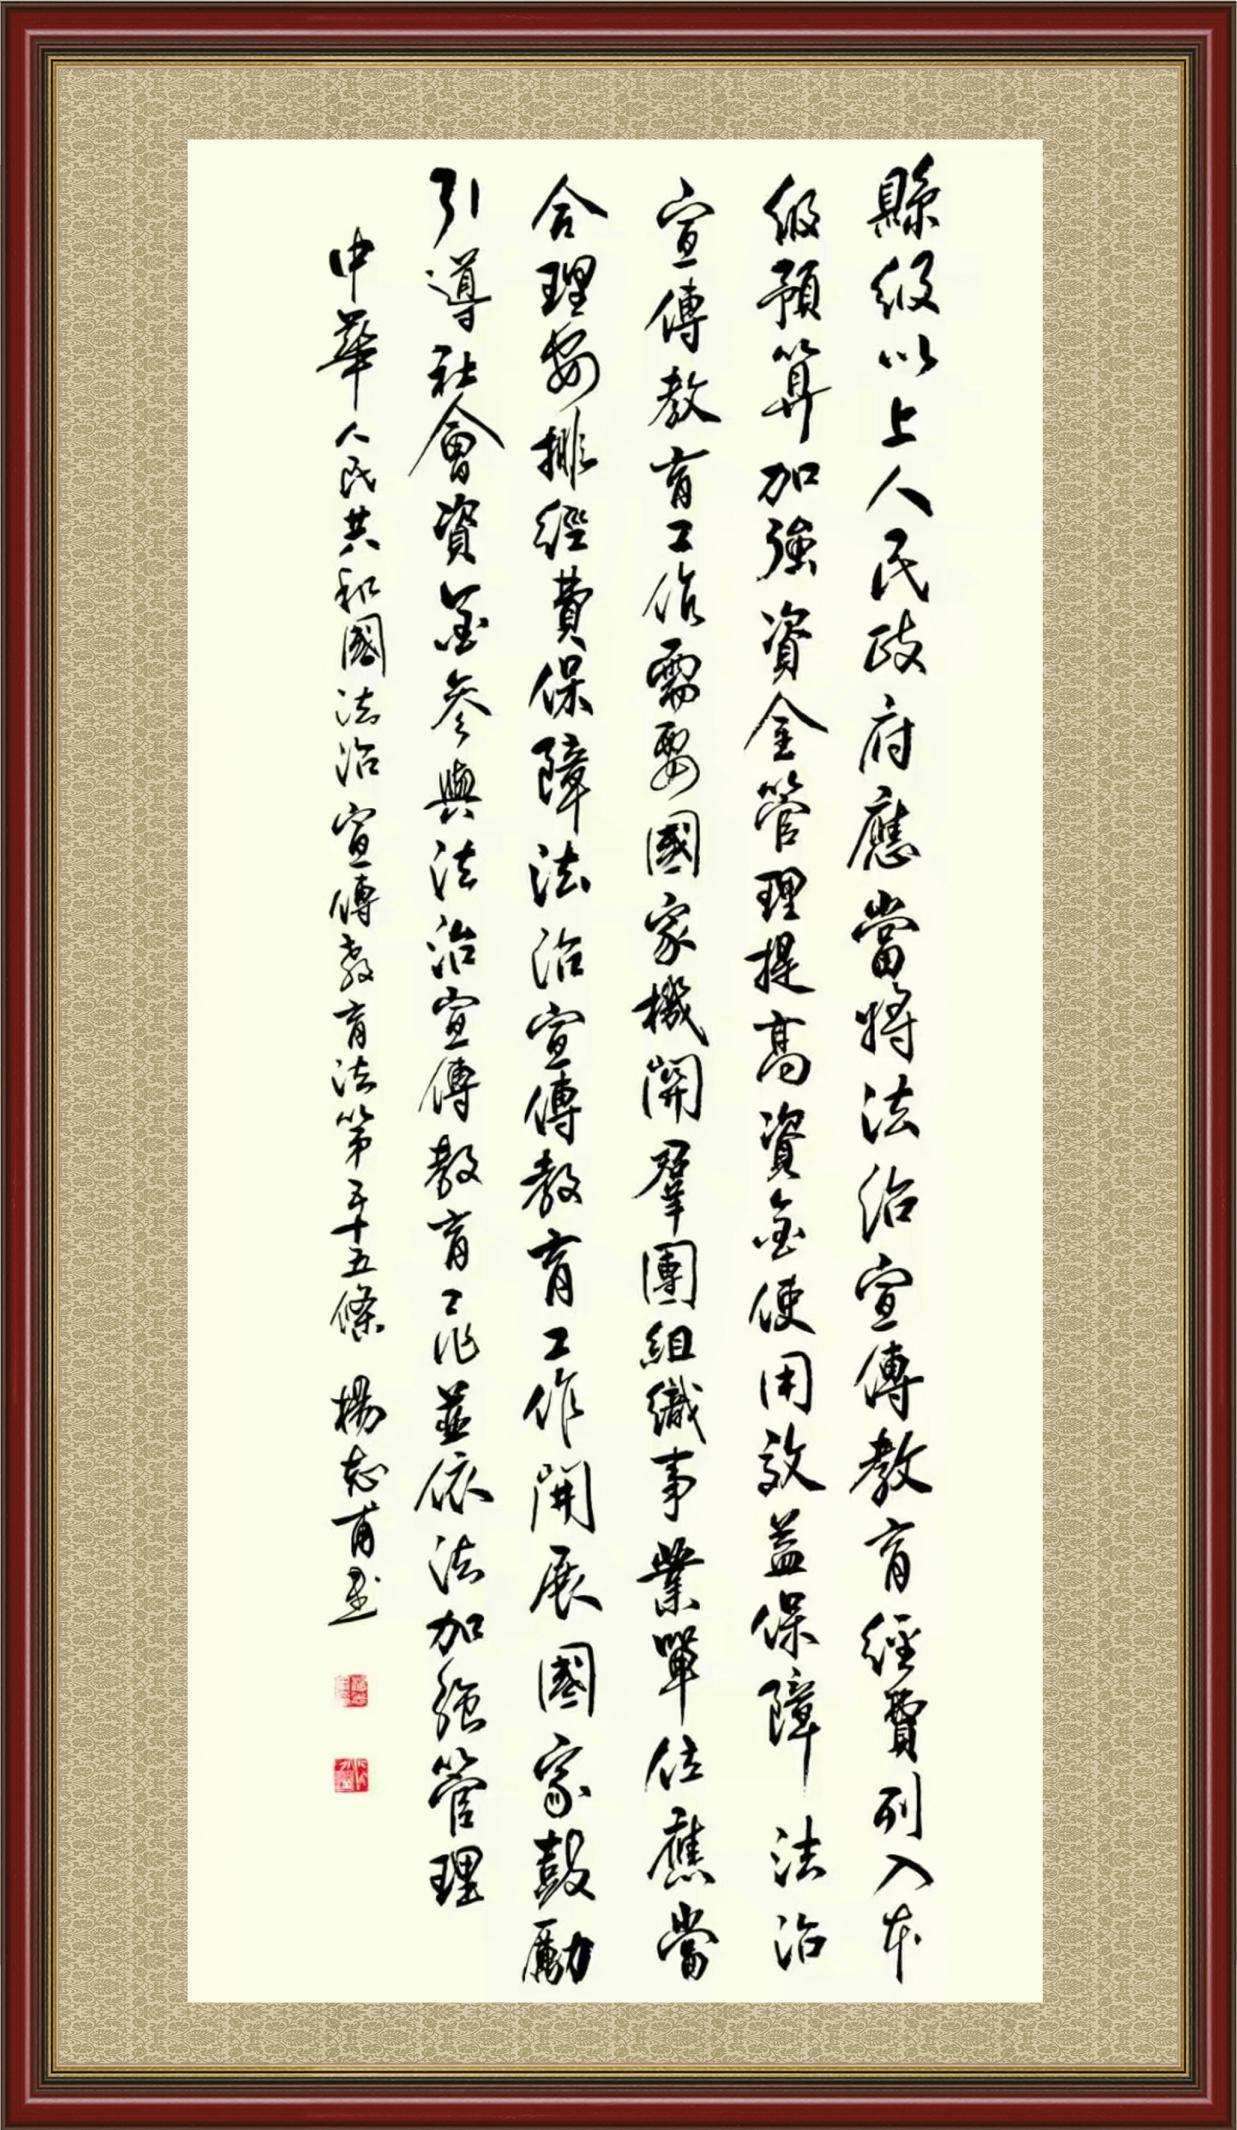 縣級以上人民政府應當將法治宣傳教育經費列入本
級預算加強資金管理提高資金使用效益保障法治
宣傳教育工作需要國家機關群團組織事業單位應當
合理安排經費保障法治宣傳教育工作開展國家鼓勵
引導社會資金參與法治宣傳教育工作並依法加強管理
中華人民共和國法治宣傳教育法第五十五條 楊志甫書